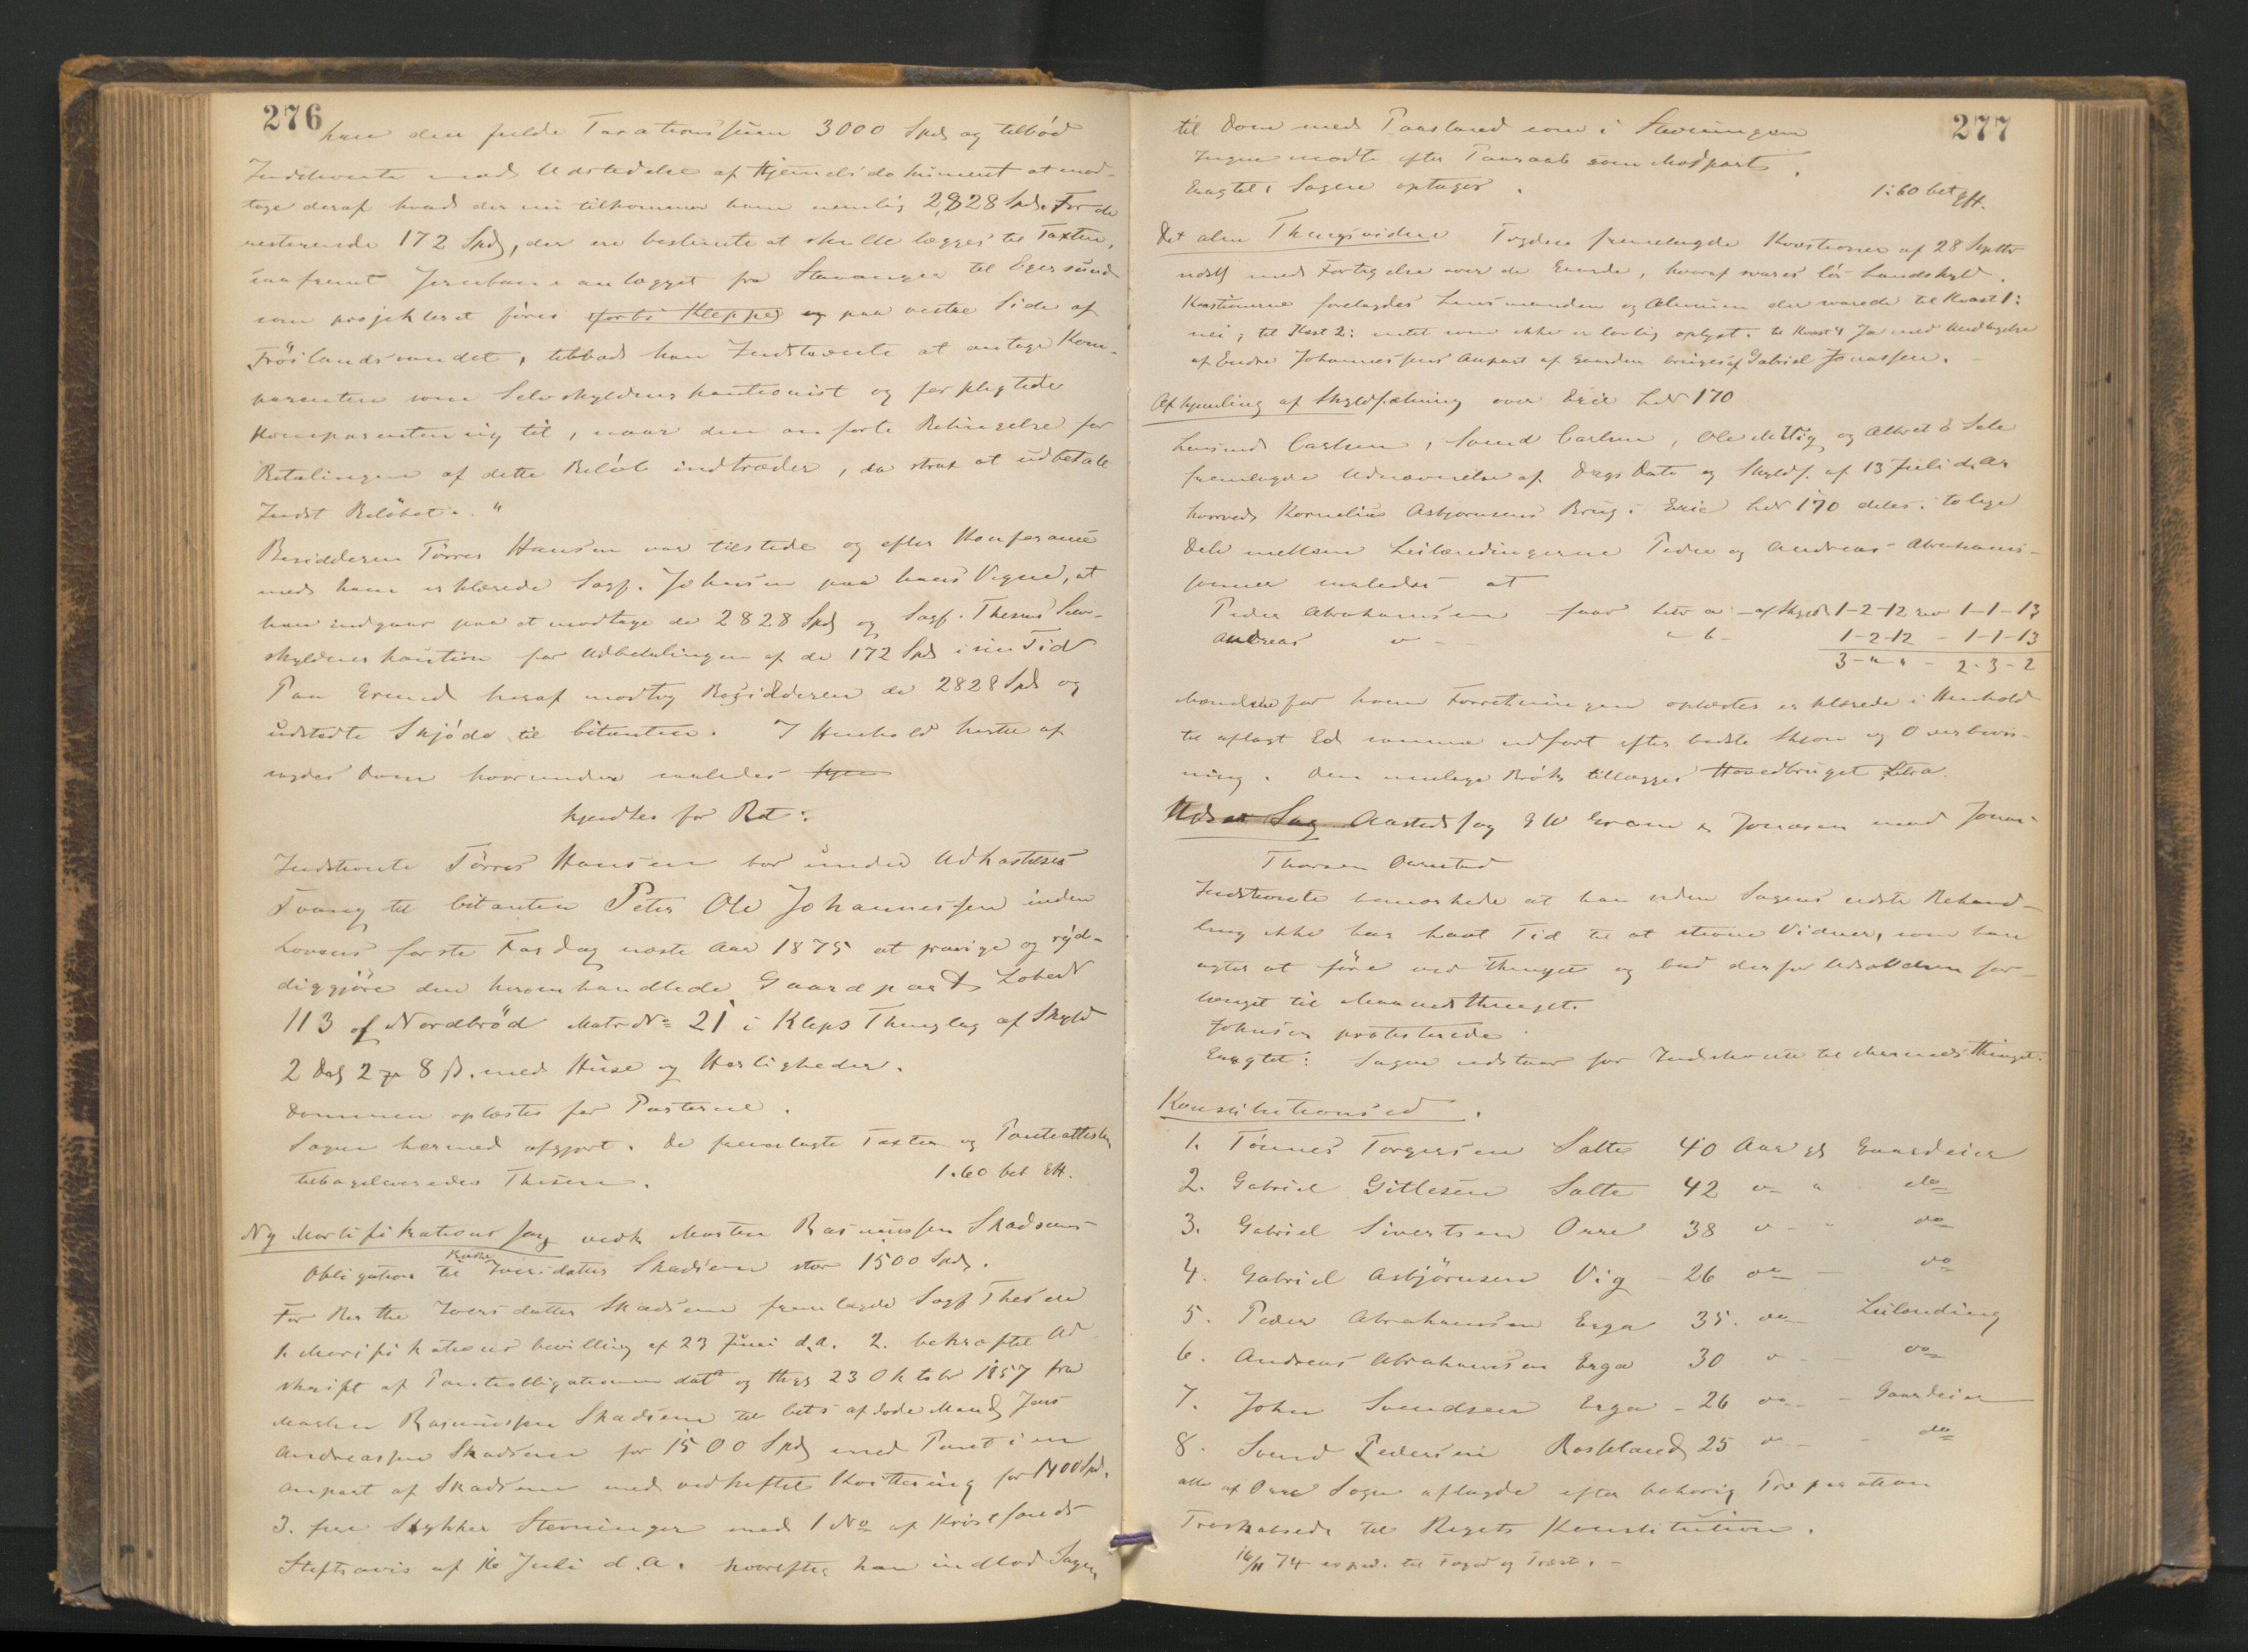 276
ham den fulde Taxationssum 3000 Spd og tilbød
Indstevnte mod Udstedelse af Hjemelsdokument at mod-
tage deraf hvad der nu tilkommer ham nemlig 2,828 Spd. For de
resterende 172 Spd, der ere bestemte at skulle lægges til Taxten,
saafremt Jernbaneanlægget fra Stavanger til Egersund
som projekteret føres forbi Kleppe og paa vestre Side af
Frøilandsvandet, tilbød han Indstevnte at antage Kom-
parenten som Selvskyldnerkautionist og forpligtede
Komparenten sig til, naar den anførte Betingelse for
Betalingen af dette Beløb indtræder, da strax at udbetale
Indst Beløbet."
Besidderen Tørres Hansen var tilstede og efter Konferance
med ham erklærede Sagf. Johnsen paa hans Vegne, at
han indgaar paa at modtage de 2828 Spd og Sagf. Thesens Selv-
skyldnerkaution for Udbetalingen af de 172 Spd i sin Tid
Paa Grund heraf modtog Besidderen de 2828 Spd og
udstedte Skjøde til Citanten. I Henhold hertil af
sagdes Dom hvorunder saaledes
kjendtes for Ret:
Indstevnte Tørres Hansen bør under Udkastelses
Tvang til Citanten Peter Ole Johannessen inden
Lovens første Fardag næste Aar 1875 at fravige og ryd-
diggjøre den heromhandlede Gaardpart Løbe No
113 af Nordbrød Matr No 21 i Kleps Thinglag af Skyld
2 Dal 2 8 ß. med Huse og Herligheder.
Dommen oplæstes for Parterne.
Sagen hermed afgjort. De fremlagte Taxter og Panteattester
tilbageleveredes Thesen. 1.60 bet EH.
Ny Mortifikations Sag vedk Morten Rasmussen Skadsems
Obligation til Berthe Iversdatter Skadsem stor 1500 Spd.
For Berthe Iversdatter Skadsem fremlagde Sagf Thesen
1. Morifikationsbevilling af 23 Juni d.A. 2. bekræftet Af
skrift af Panteobligationen dat og thgl 23 Oktobr 1857 fra
Morten Rasmussen Skadsem til Cits afdøde Mand Jens
Andreassen Skadsem for 1500 Spd med Pant i en
Anpart af Skadsem med vedheftet Kvittering for 1400 Spd.
3. fire Stykker Stevninger med 1 No af Kristsands
Stiftsavis af 16 Juli d.A. hvorefter han indlod Sagen
277
til Dom med Paastand som i Stevningen
Ingen mødte efter Paaraab som Modpart.
Eragtet: Sagen optages. 1.60 bet EH.
Det alm Thingsvidne Fogden fremlagde Kvæstioner af 28 Septbr
udst med Fortegnelse over de Gaarde, hvoraf svares løs Landskyld.
Kvæstionerne forelagdes Lensmanden og Almuen der svarede til Kvæst 1:
nei; til Kvæst 2: intet som ikke er lovlig oplyst. til Kvæst 4 Ja med Undtagelse
af Endre Johannessens Anpart af Gaarden bruges af Gabriel Jonassen.
Afhjemling af Skyldsætning over Erie LNo 170
Lensmd Carlsen, Svend Carlsen, Ole M Vig og Albret O Sele
fremlagde Udnævnelse af Dags Dato og Skylds. af 13 Juli d. Ar
hvorved Kornelius Asbjørnsens Brug i Erie LNo 170 deles i to lige
Dele mellem Leilændingerne Peder og Andreas Abrahams-
sønner saaledes at
Peder Abrahamsen faar Litr a - af Skyld 1-2-12 1-1-13
Andreas - b - 1-2-12 - 1-1-13
3-"-" - 2-3-2
Mændene for hvem Forretningen oplæstes erklærede i Henhold
til aflagt Ed samme udført efter bedste Skjøn og Overbevis-
ning. Den umulige Brøk tillægges Hovedbruget Litr a.
Udsat Sag Aasteds Sag G W Gram Jonasen mod Jonas
Thorsen Orrestad
Indstevnte bemærkede at han siden Sagens sidste Behand-
ling ikke har havt Tid til at stevne Vidner, som han
agter at føre ved Thinget og bad derfor Udsættelsen for-
længet til Maanedsthinget.
Johnsen protesterede
Eragtet: Sagen udstaar for Indstevnte til Maanedsthinget.
Konstitutionsed.
1. Tønnes Torgersen Salte 40 Aar gl Gaardeier
2. Gabriel Gitlesen Salte 42 do " do
3. Gabriel Sivertsen Orre 38 do " do
4. Gabriel Asbjørnsen Vig - 26 do - do
5. Peder Abrahamsen Erga 35. do Leilænding
6. Andreas Abrahamsen Erga 30 do - do
7. John Svendsen Erga - 26 do - Gaardeier
8. Svend Pedersen Rosseland 25 do - do
alle af Orre Sogn aflagde efter behørig Præparation
Troskabsed til Rigets Konstitution.
16/11 74 exped. til Foged og Præst. -